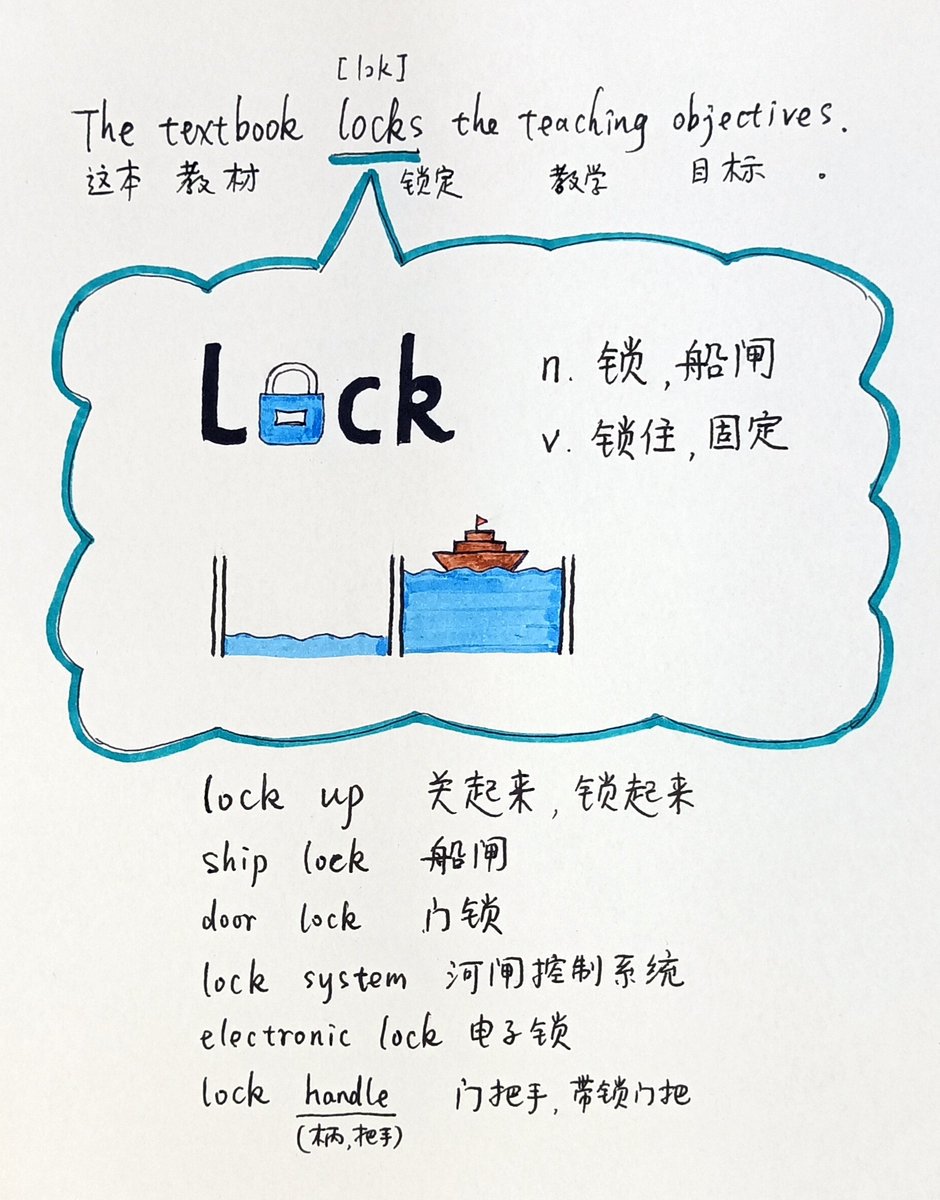 [lɔk]
The textbook locks the teaching objectives.
这本 教材 锁定 教学 目标 。
Lock
n. 锁,船闸
v. 锁住,固定
lock up 关起来,锁起来
ship lock 船闸
door lock 门锁
lock system 河闸控制系统
electronic lock 电子锁
lock handle 门把手,带锁门把
(柄,把手)